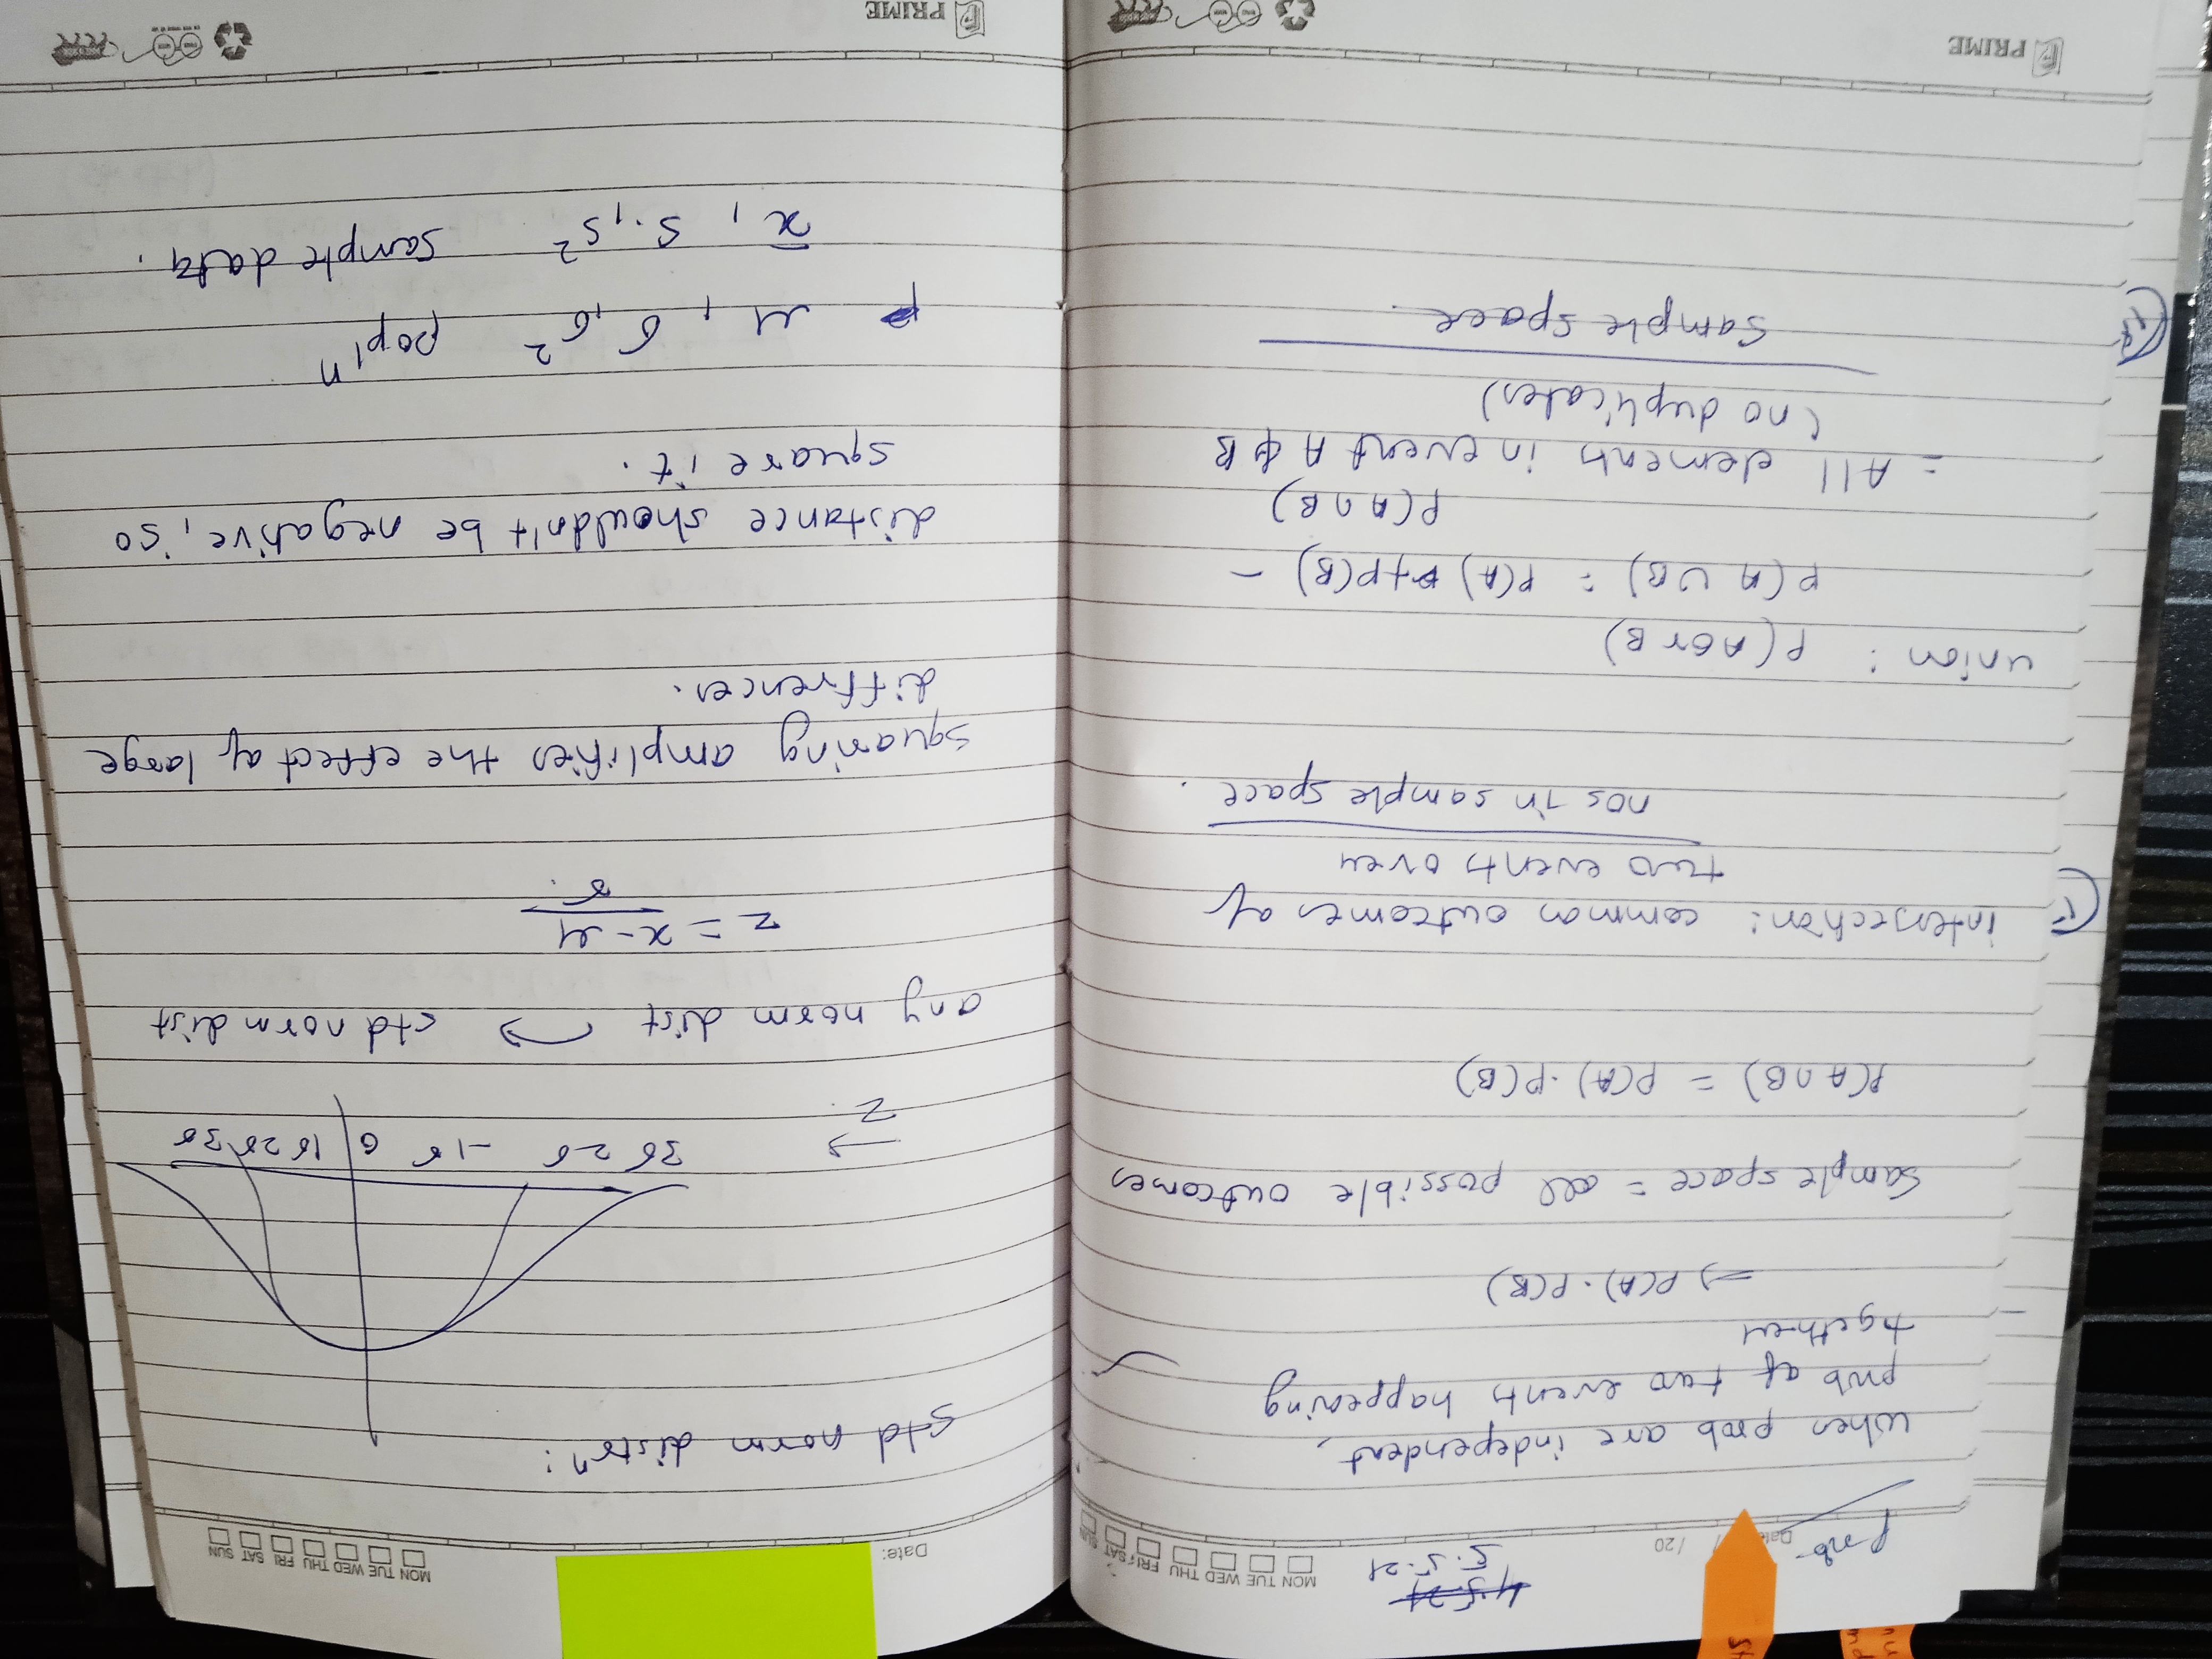 Prob
Date: / /20
4.5.21
5.5.21
MON TUE WED THU FRI SAT SUN
When prob are independent,
prob of two events happening
tgether
⇒ P(A). P(B)
Sample space = all possible outcomes
P(A∩B) = P(A).P(B)
intersection: common outcomes of
two events over
nos in sample space.
union: P(A or B)
P(A ∪ B) = P(A) + P(B) -
P(A∩B)
= All elements in event A & B
(no duplicates)
Sample space.
PRIME
Date:
MON TUE WED THU FRI SAT SUN
std norm distrⁿ:
3σ 2σ -1σ 0 1σ 2σ 3σ
→ Z
any norm dist → std norm dist
z = x-μ
σ
squaring amplifies the effect of large
diffrences.
distance shouldn't be negative, so
square it.
μ, σ, σ² pop'ⁿ
x̄, s, s² sample data.
PRIME